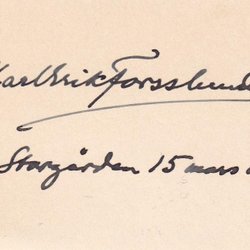 Karl Erik Forsslund
Storgården 15 mars